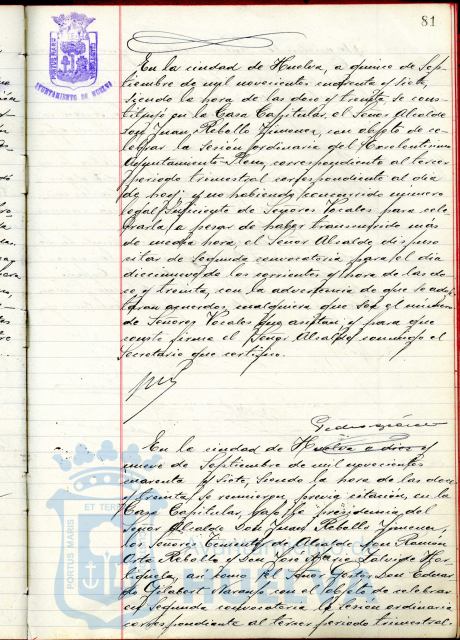 81
AYUNTAMIENTO DE HUELVA
En la ciudad de Huelva, a quince de Sep-
tiembre de mil novecientos cuarenta y siete,
siendo la hora de las doce y treinta, se cons-
tituyó en la Casa Capitular, el Señor Alcalde
Don Juan Rebollo Jimenez, con objeto de ce-
lebrar la sesión ordinaria del Excelentísimo
Ayuntamiento Pleno, correspondiente al tercer
periodo trimestral correspondiente al día
de hoy; y no habiendo concurrido número
legal suficiente de Señores Vocales para cele-
brarla, a pesar de haber transcurrido más
de media hora, el Señor Alcalde, dispuso
citar de segunda convocatoria para el día
diecinueve de los corrientes y hora de las do-
ce y treinta, con la advertencia de que se adop-
tarán acuerdos, cualquiera que sea el número
de Señores Vocales que asistan; y para que
conste firma el Señor Alcalde conmigo el
Secretario que certifico.
En la ciudad de Huelva a diez y
nueve de Septiembre de mil novecientos
cuarenta y siete, siendo la hora de las doce
y treinta, se reunieron, previa citación, en la
Casa Capitular, bajo la presidencia del
Señor Alcalde Don Juan Rebollo Jimenez,
los Señores Tenientes de Alcalde Don Ramón
Orta Rebollo y Don José
Don Eduar-
do con el objeto de celebrar
en segunda convocatoria la sesión ordinaria
correspondiente al tercer periodo trimestral.
PORTUS MARIS ET TERRE
Ayuntamiento de
HUELVA